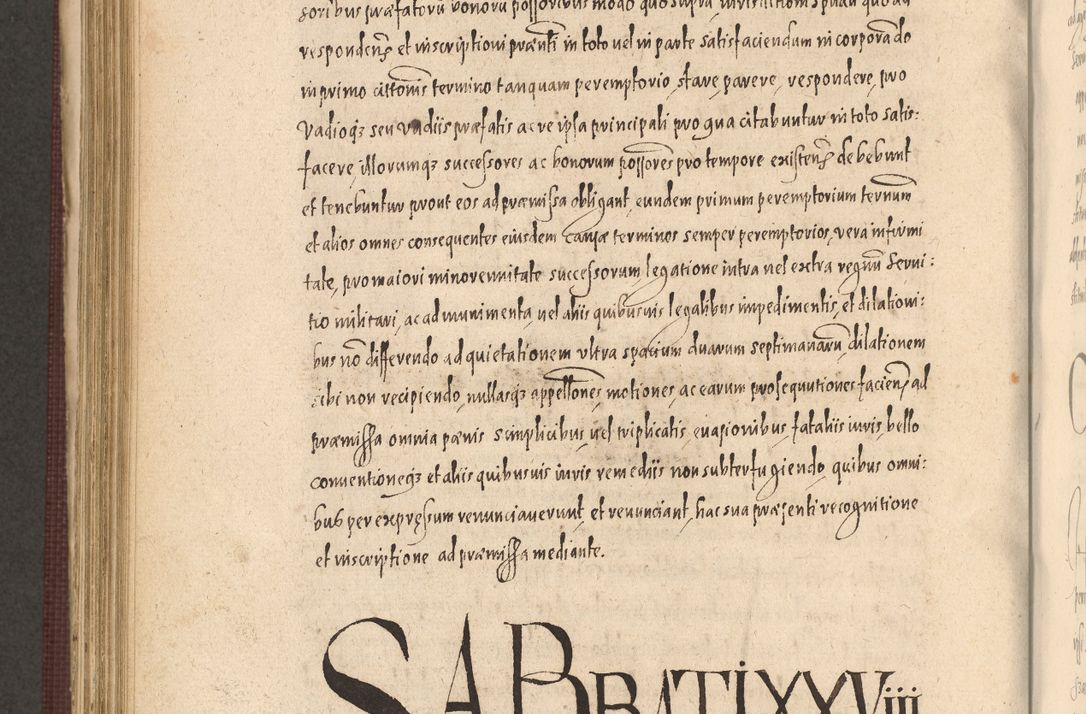 soribus præfatorū bonorū possoribus modo quo supra iurisdictioni spūali quo ad
respondenẽ et inscriptioni præntī in toto uel in parte satisfaciendum in corporādo
in primo cittōnis termino tanquam peremptorio, stare, parere, respondere, pro
vadioq; seu vadiis præfatis ac re ipsa principali pro qua citabuntur in toto satis:
facere, illorumq; successores ac bonorum possores pro tempore existenẽ debebunt
et tenebuntur prout eos ad præmissa obligant, eundem primum peremptorium ternum
et alios omnes consequentes eiusdem causæ terminos semper peremptorios, vera infirmi
tate, pro maiori minorennitate successorum, legatione intra uel extra regnū Servi:
tio militari, ac ad munimenta, uel aliis quibusuis legalibus impedimentis, et dilationi:
bus nō differendo ad quietationem ultra spacium duarum septimanarū, dilationem
sibi non recipiendo, nullasq; appellōnes, motiones, ac earum prosequutiones facienẽ ad
præmissa omnia pænis simplicibus, uel triplicatis, euasionibus, fataliis iuris, bello
conuentioneq; et aliis quibusuis iuris remediis non subterfugiendo, quibus omni:
bus per expressum renunciauerunt, et renunciant, hac sua præsenti recognitione
et inscriptione ad præmissa mediante.
SABBATI XXViii